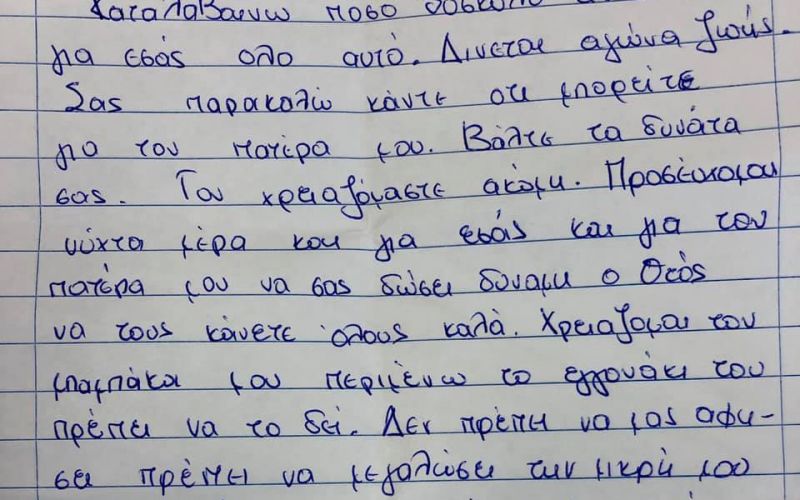 Καταλαβαινω ποσο δύσκολο
για εσάς ολο αυτό. Δινεται αγώνα ζωής.
Σας παρακαλώ κάντε οτι μπορείτε
για τον πατέρα μου. Βάλτε τα δυνάτα
σας. Τον χρειαζόμαστε ακόμη. Προσέυχομαι
νύχτα μέρα και για εσάς και για τον
πατέρα μου να σας δώσει δυναμη ο Θεός
να τους κάνετε όλους καλά. Χρειαζομαι τον
μπαμπάκα μου περιμένω το εγγονάκι του
πρέπει να το δεί. Δεν πρέπει να μας αφη-
σει πρέπει να μεγαλώσει την μικρή μου